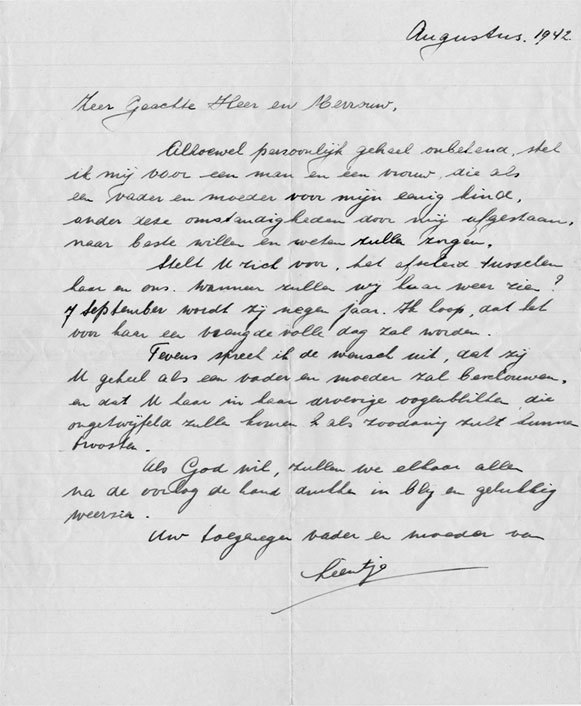 Augustus. 1942.
Zeer Geachte Heer en Mevrouw,
Alhoewel persoonlijk geheel onbekend, stel
ik mij voor een man en een vrouw, die als
een vader en moeder voor mijn eenig kind,
onder deze omstandigheden door mij afgestaan,
naar beste willen en weten zullen zorgen.
Stelt U zich voor, het afscheid tusschen
haar en ons. Wanneer zullen wij haar weer zien?
7 September wordt zij negen jaar. Ik hoop, dat het
voor haar een vreugde volle dag zal worden.
Tevens spreek ik de wensch uit, dat zij
U geheel als een vader en moeder zal beschouwen,
en dat U haar in haar droevige oogenblikken, die
ongetwijfeld zullen komen als zoodanig zult kunnen
troosten.
Als God wil, zullen we elkaar allen
na de oorlog de hand drukken in blij en gelukkig
weerzien.
Uw toegenegen vader en moeder van
Leentje